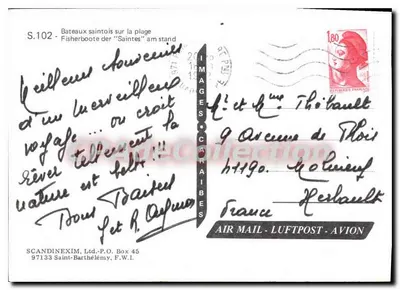 S.102 - Bateaux saintois sur la plage
Fisherboote der "Saintes" am stand
1,80
Meilleurs souvenirs
d'un merveilleux
voyage... on croit
rêver tellement la
nature est belle !!!
Bons Baisers
et R.
IMAGES CARAIBES
Mr et Mme Thébault
9 Avenue de
41190. Molineuf
Herbault
France
AIR MAIL - LUFTPOST - AVION
SCANDINEXIM, Ltd.-P.O. Box 45
97133 Saint-Barthélémy, F.W.I.